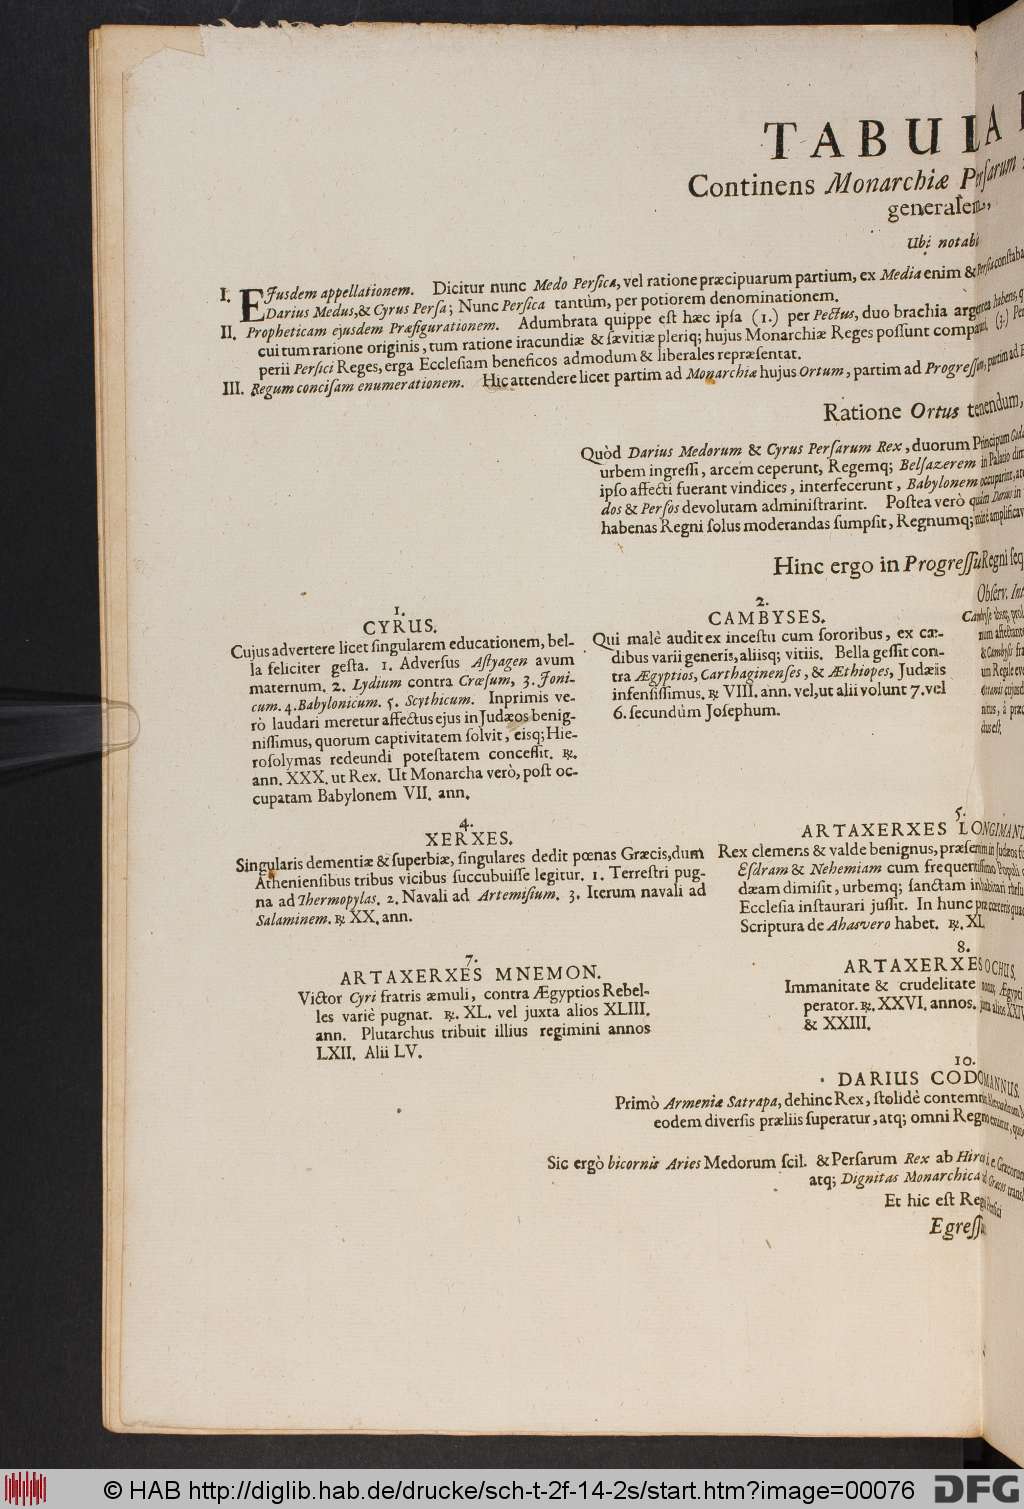 TABULA
Continens Monarchiæ Persarum
generalem,
Ubi notabi
I. EJusdem appellationem. Dicitur nunc Medo Persica, vel ratione præcipuarum partium, ex Media enim & Persia constaba
Darius Medus, & Cyrus Persa; Nunc Persica tantùm, per potiorem denominationem.
II. Propheticam ejusdem Præfigurationem. Adumbrata quippe est hæc ipsa (1.) per Pectus, duo brachia argentea habens, q
cui tum ratione originis, tum ratione iracundiæ & sævitiæ pleriq; hujus Monarchiæ Reges possunt comparari, (3.) Per
perii Persici Reges, erga Ecclesiam beneficos admodum & liberales repræsentat.
III. Regum concisam enumerationem. Hic attendere licet partim ad Monarchiæ hujus Ortum, partim ad Progressum, partim ad E
Ratione Ortus tenendum,
Quòd Darius Medorum & Cyrus Persarum Rex, duorum Principum
urbem ingressi, arcem ceperunt, Regemq; Belsazerem in Palatio
ipso affecti fuerant vindices, interfecerunt, Babylonem occuparint,
dos & Persos devolutam administrarint. Postea verò quàm Darius in
habenas Regni solus moderandas sumpsit, Regnumq; mirè amplificav
Hinc ergo in Progressu Regni seq
1.
CYRUS.
Cujus advertere licet singularem educationem, bel-
la feliciter gesta. 1. Adversus Astyagen avum
maternum. 2. Lydium contra Cræsum, 3. Joni-
cum. 4. Babylonicum. 5. Scythicum. Inprimis ve-
rò laudari meretur affectus ejus in Judæos benig-
nissimus, quorum captivitatem solvit, eisq; Hie-
rosolymas redeundi potestatem concessit. ℞.
ann. XXX. ut Rex. Ut Monarcha verò, post oc-
cupatam Babylonem VII. ann.
2.
CAMBYSES.
Qui malè audit ex incestu cum sororibus, ex cæ-
dibus varii generis, aliisq; vitiis. Bella gessit con-
tra Ægyptios, Carthaginenses, & Æthiopes, Judæis
infensissimus. ℞ VIII. ann. vel, ut alii volunt 7. vel
6. secundùm Josephum.
Observ. Int
Cambyse
num
& Cambysis
um Regale
cujusd
à præ
dus est.
4.
XERXES.
Singularis dementiæ & superbiæ, singulares dedit pœnas Græcis, dum
Atheniensibus tribus vicibus succubuisse legitur. 1. Terrestri pug-
na ad Thermopylas. 2. Navali ad Artemisium. 3. Iterum navali ad
Salaminem. ℞ XX. ann.
5.
ARTAXERXES LONGIMANU
Rex clemens & valde benignus, præsertim in Judæos
Esdram & Nehemiam cum frequentissimo Populo
dæam dimisit, urbemq; sanctam inhabitari
Ecclesia instaurari jussit. In hunc præ cæteris
Scriptura de Ahasvero habet. ℞. XL
7.
ARTAXERXES MNEMON.
Victor Cyri fratris æmuli, contra Ægyptios Rebel-
les variè pugnat. ℞. XL. vel juxta alios XLIII.
ann. Plutarchus tribuit illius regimini annos
LXII. Alii LV.
8.
ARTAXERXES OCHUS.
Immanitate & crudelitate notus, Ægypti
perator. ℞. XXVI. annos. juxta alios XXIV
& XXIII.
10.
DARIUS CODOMANNUS.
Primò Armeniæ Satrapa, dehinc Rex, stolidè contemnens Alexandrum
eodem diversis præliis superatur, atq; omni Regno
Sic ergò bicornis Aries Medorum scil. & Persarum Rex ab Hirco i. e. Græcorum
atq; Dignitas Monarchica ad Græcos transl
Et hic est Regni Persici
Egressus
© HAB http://diglib.hab.de/drucke/sch-t-2f-14-2s/start.htm?image=00076
DFG